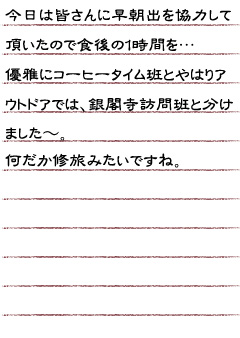 今日は皆さんに早朝出を協力して
頂いたので食後の1時間を…
優雅にコーヒータイム班とやはりア
ウトドアでは、銀閣寺訪問班と分け
ました～。
何だか修旅みたいですね。